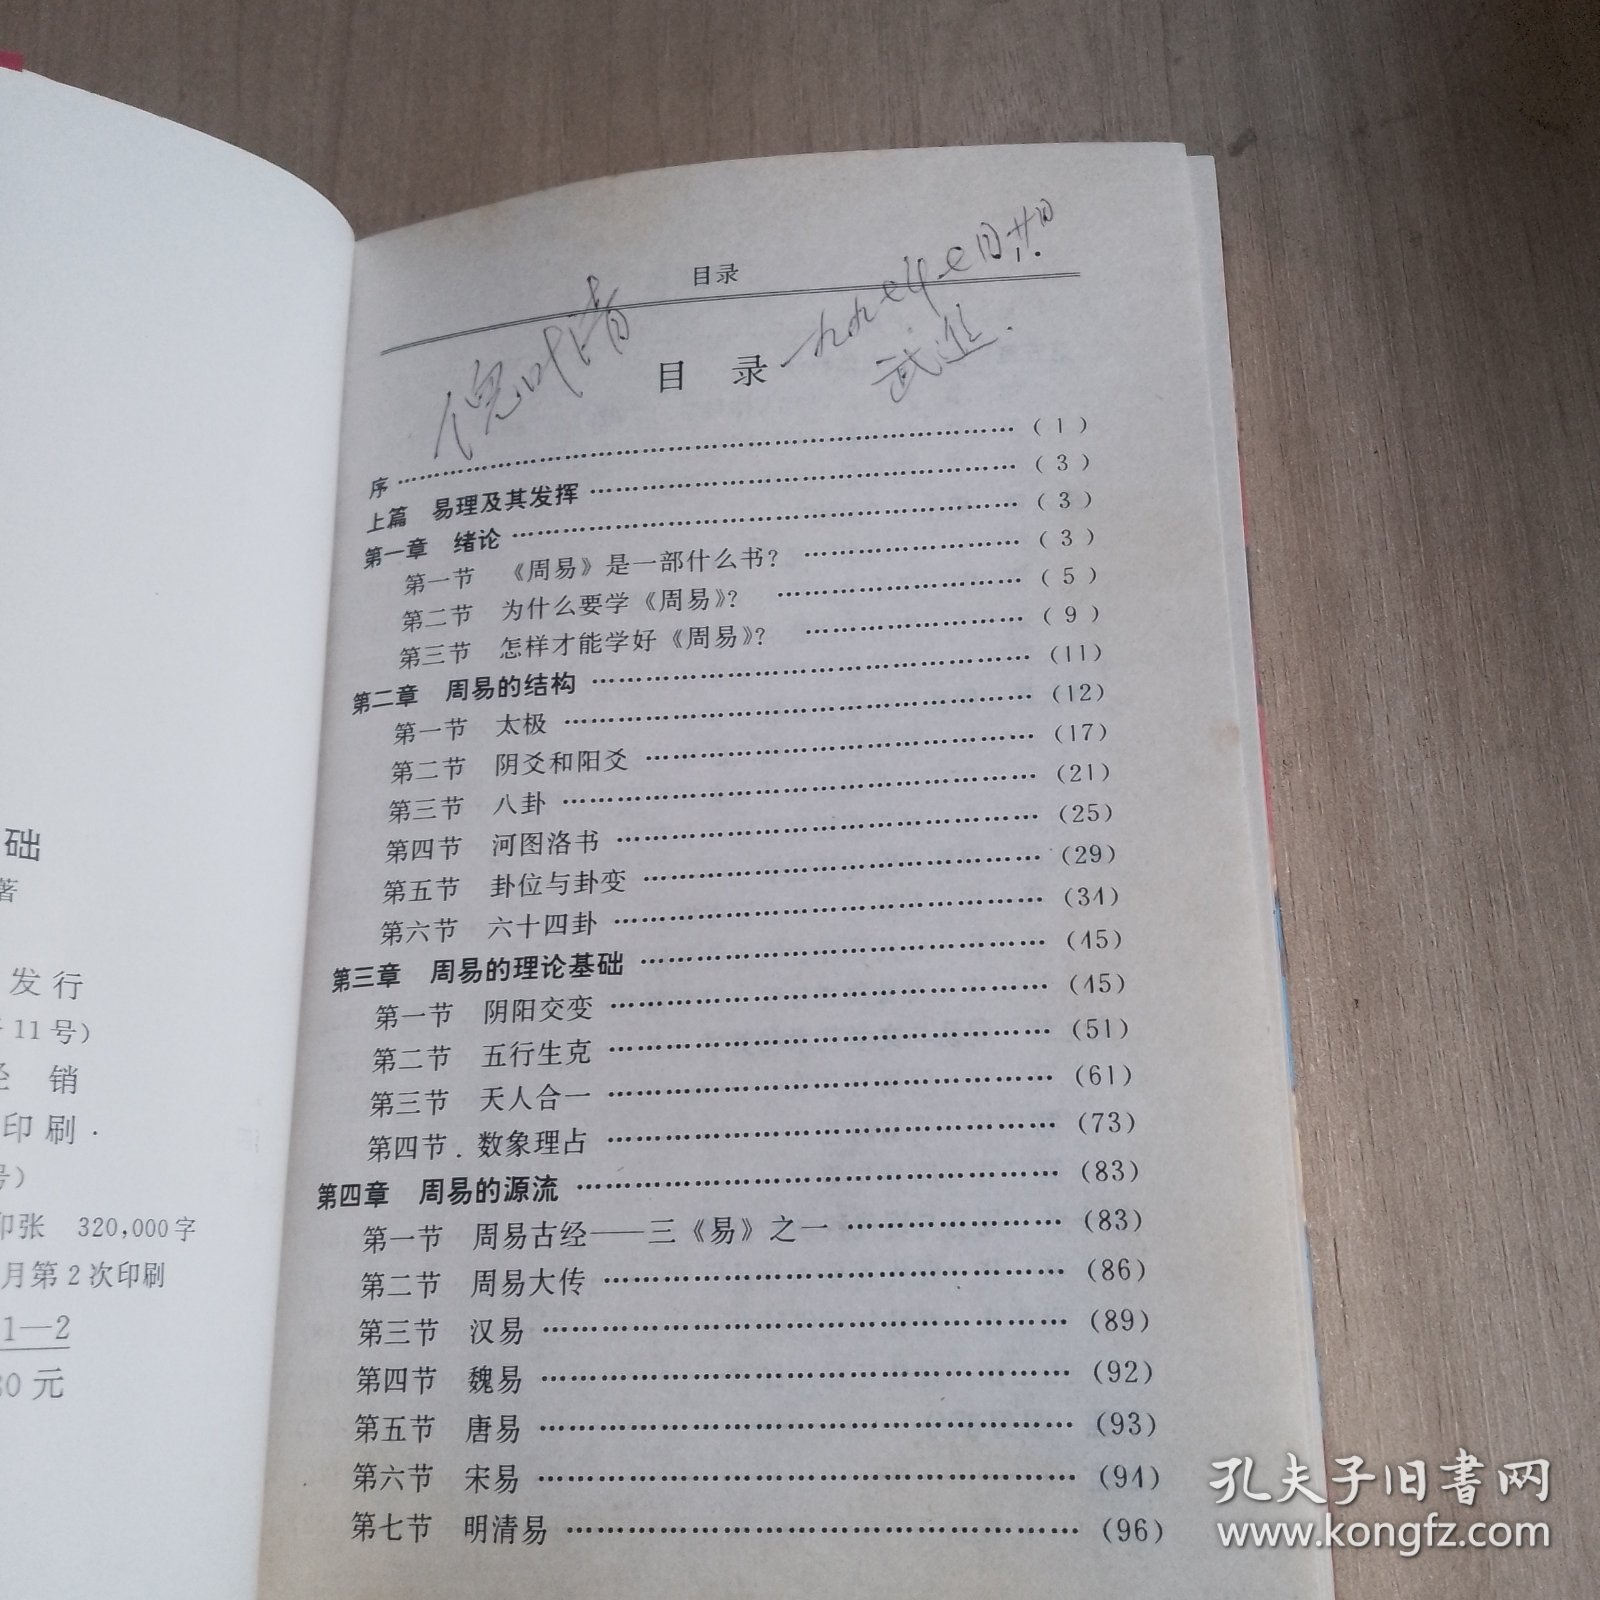 础
著
发行
11号)
销
印刷
号)
印张 320,000字
月第2次印刷
1—2
80元
目录
目 录
武进.
序……(1)
上篇 易理及其发挥……(3)
第一章 绪论……(3)
第一节 《周易》是一部什么书?……(3)
第二节 为什么要学《周易》?……(5)
第三节 怎样才能学好《周易》?……(9)
第二章 周易的结构……(11)
第一节 太极……(12)
第二节 阴爻和阳爻……(17)
第三节 八卦……(21)
第四节 河图洛书……(25)
第五节 卦位与卦变……(29)
第六节 六十四卦……(34)
第三章 周易的理论基础……(45)
第一节 阴阳交变……(45)
第二节 五行生克……(51)
第三节 天人合一……(61)
第四节 数象理占……(73)
第四章 周易的源流……(83)
第一节 周易古经——三《易》之一……(83)
第二节 周易大传……(86)
第三节 汉易……(89)
第四节 魏易……(92)
第五节 唐易……(93)
第六节 宋易……(94)
第七节 明清易……(96)
孔夫子旧书网
www.kongfz.com